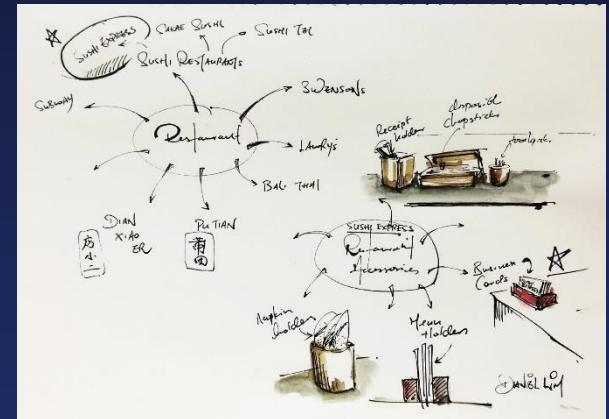 SUSHI EXPRESS
SUSHI
SUSHI TEI
SUSHI RESTAURANTS
SUBWAY
SWENSONS
Restaurant
LAWRYS
THAI
DIAN
XIAO
ER
店小二
PU TIAN
莆田
Receipt
holder
chopsticks
SUSHI EXPRESS
Restaurant
Accessories
Business
Cards
Napkin
holder
Menu
Holder
DANIEL LIM